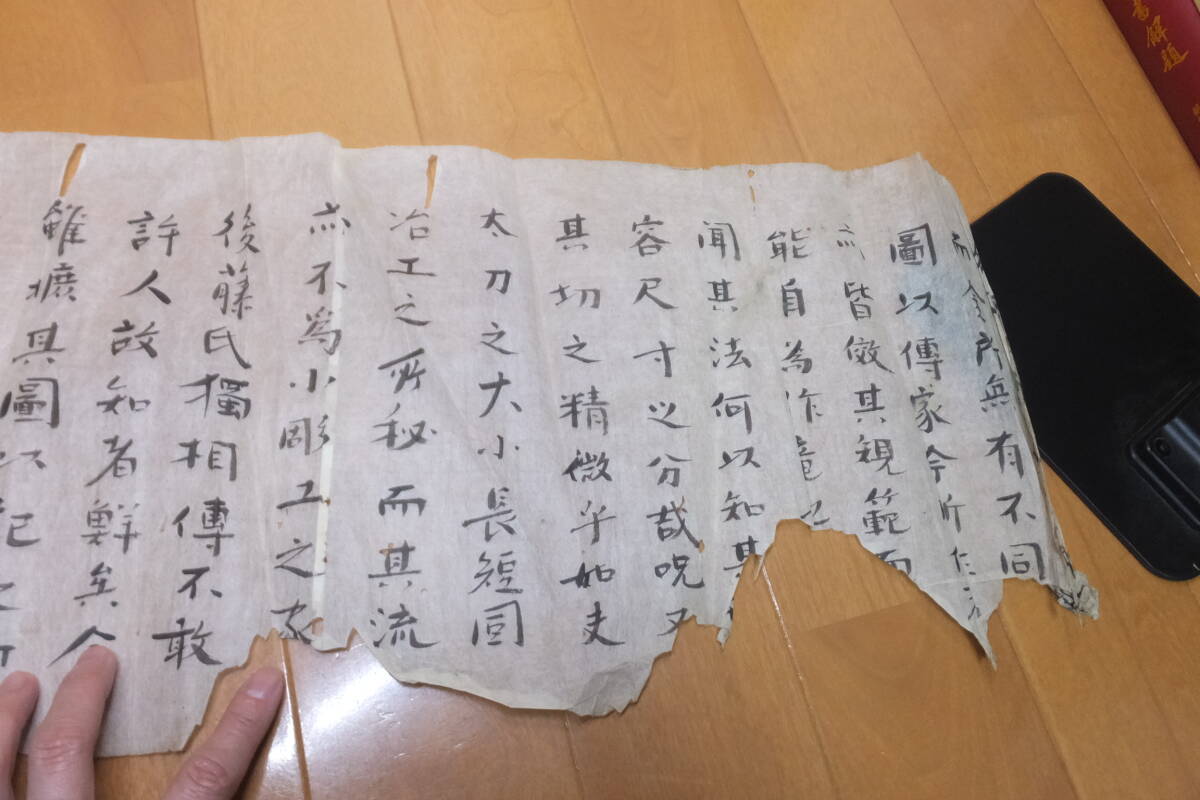 所無有不同
圖以傳家今所
皆傚其規範而
能自為作
聞其法何以知其
容尺寸之分哉况又
其切之精微乎如夫
太刀之大小長短固
冶工之所秘而其流
亦不為小彫工之家
後藤氏獨相傳不敢
許人故知者鮮矣人
雖其圖以記之
書解題